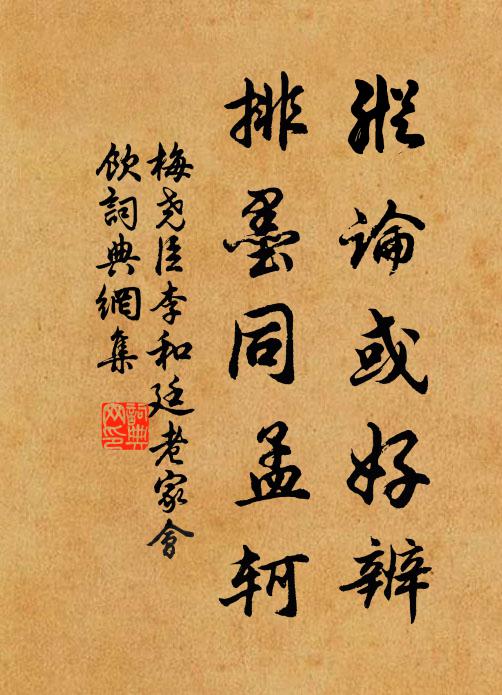 縱論或好辨
排墨同孟軻
梅堯臣李和廷老家會
飲詞典網集
詞典
网印